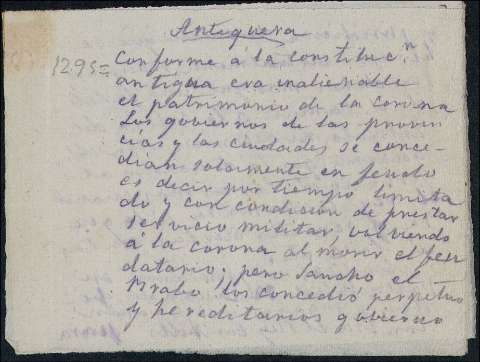 Antiquera
1295=
Conforme á la constituc.n
antigua era inalienable
el patrimonio de la corona
Los gobiernos de las provin
cias y las ciudades se conce-
dian solamente en feudo
es decir por tiempo limita
do y con condicion de prestar
servicio militar, volviendo
á la corona al morir el feu
datario; pero Sancho el
Brabo los concedió perpetuo
y hereditarios gobierno